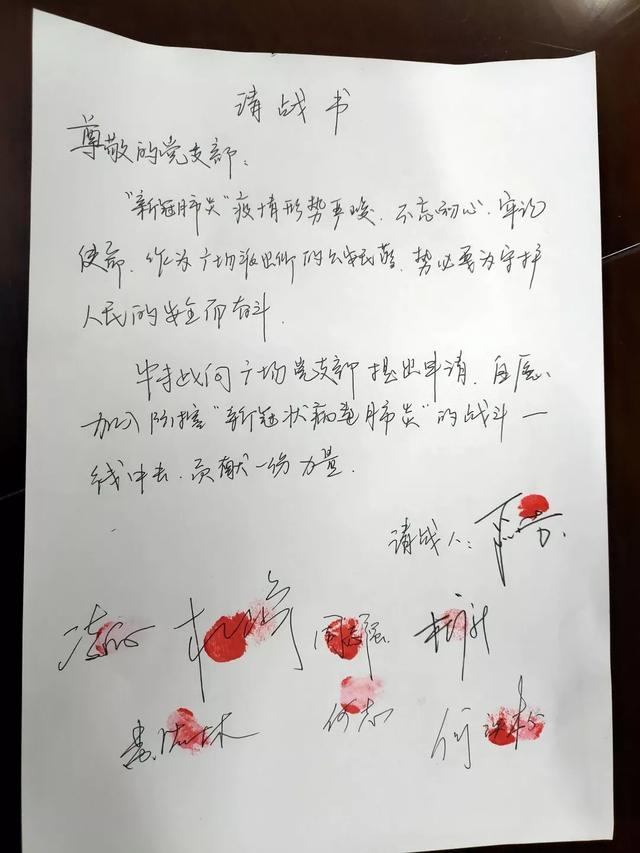 请战书
尊敬的党支部：
“新冠肺炎”疫情形势严峻，不忘初心、牢记
使命，作为广场派出所的公安民警，势必要为守护
人民的安全而奋斗.
我向广场党支部提出申请，自愿
加入防控“新冠状病毒肺炎”的战斗一
线中去，贡献一份力量.
请战人：
周志强
何志